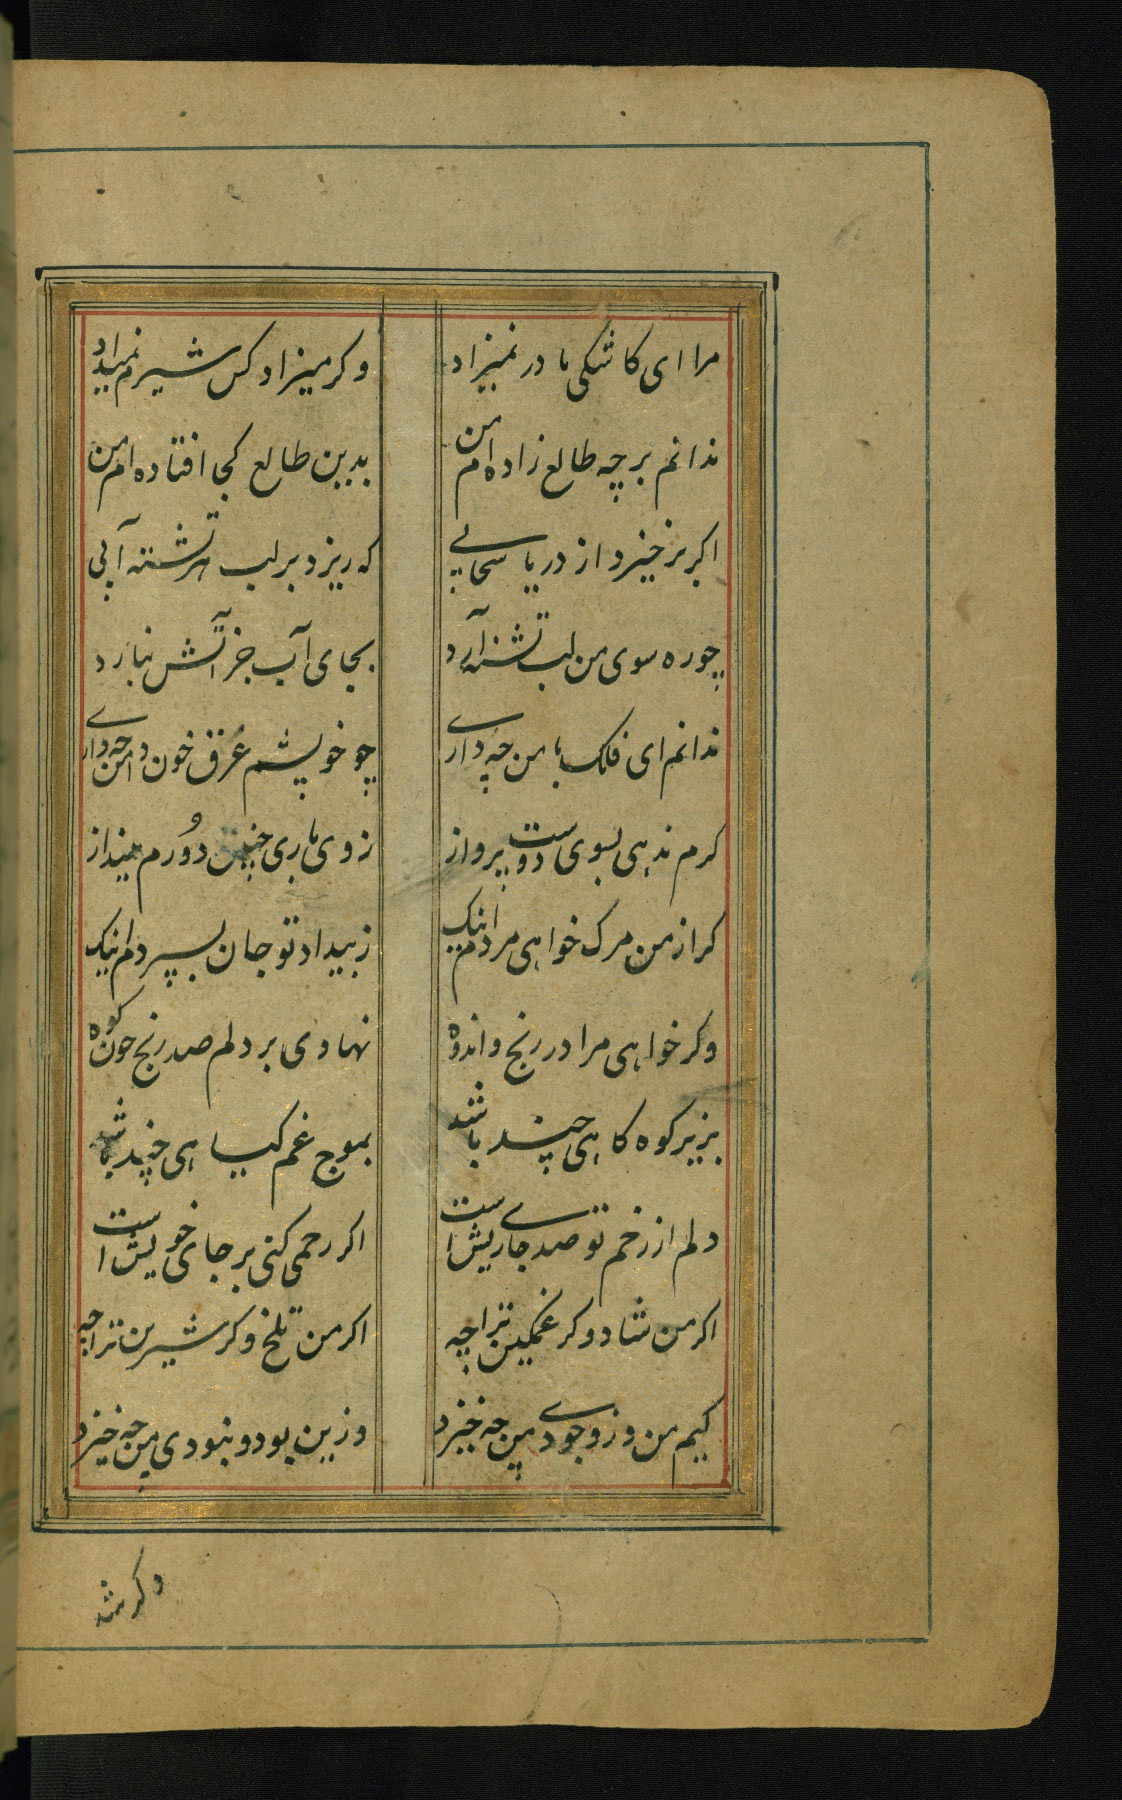 مرا ای کاشکی مادر نمیزاد
وکر میزاد کس شیرم نمیداد
ندانم بر چه طالع زاده‌ام من
بدین طالع کجا افتاده‌ام من
اکر برخیزد از دریا سحابی
که ریزد بر لب هر تشنه آبی
چو ره سوی من لب تشنه آرد
بجای آب جز آتش نبارد
ندانم ای فلک با من چه داری
چو خویشم غرق خون دامن چه داری
کرم ندهی بسوی دوست پرواز
ز وی باری چنین دورم مینداز
کر از من مرک خواهی مردم اینک
ز بیداد تو جان بسپردم اینک
وکر خواهی مرا در رنج و اندوه
نهادی بر دلم صد رنج چون کوه
بزیر کوه کاهی چند باشد
بموج غم کیاهی چند باشد
دلم از زخم تو صد جای ریش است
اکر رحمی کنی بر جای خویش است
اکر من شاد وکر غمکین ترا چه
اکر من تلخ وکر شیرین ترا چه
کیم من وز وجود من چه خیزد
وزین بود و نبود من چه خیزد
وکر شد